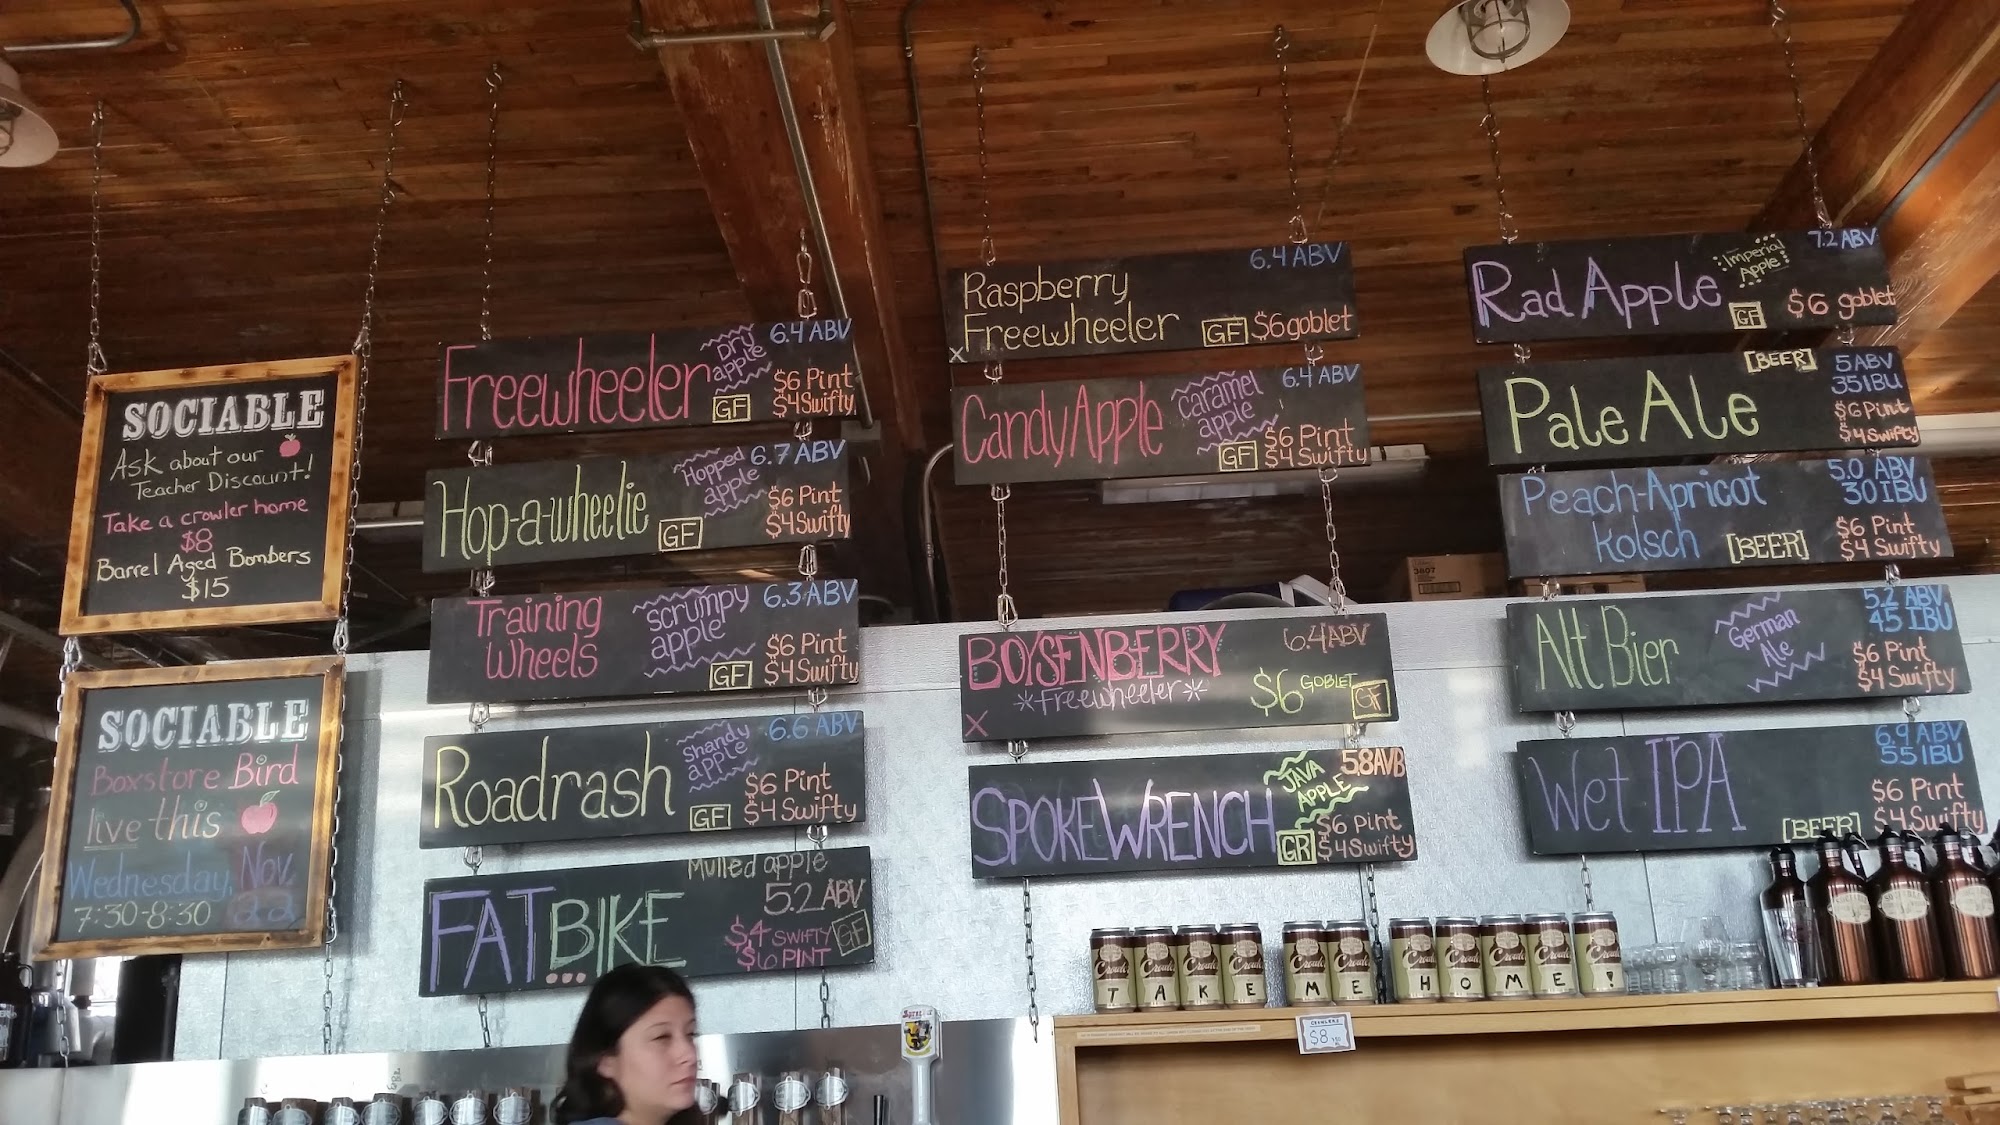 SOCIABLE
Ask about our
Teacher Discount!
Take a crowler home
$8
Barrel Aged Bombers
$15
SOCIABLE
Boxstore Bird
live this
Wednesday, Nov.
7:30-8:30 22
Freewheeler
Dry
apple
6.4 ABV
GF
$6 Pint
$4 Swifty
Hop-a-wheelie
Hopped
apple
6.7 ABV
GF
$6 Pint
$4 Swifty
Training
Wheels
scrumpy
apple
6.3 ABV
GF
$6 Pint
$4 Swifty
Roadrash
shandy
apple
6.6 ABV
GF
$6 Pint
$4 Swifty
FAT BIKE
Mulled apple
5.2 ABV
$4 SWIFTY
$6 PINT
GF
Raspberry
Freewheeler
6.4 ABV
GF
$6 goblet
X
Candy Apple
caramel
apple
6.4 ABV
GF
$6 Pint
$4 Swifty
BOYSENBERRY
*freewheeler*
6.4 ABV
$6 GOBLET
GF
X
SPOKEWRENCH
JAVA
APPLE
5.8 AVB
GR
$6 Pint
$4 Swifty
Rad Apple
Imperial
Apple
7.2 ABV
GF
$6 goblet
Pale Ale
[BEER]
5 ABV
35 IBU
$6 Pint
$4 Swifty
Peach-Apricot
Kolsch
[BEER]
5.0 ABV
30 IBU
$6 Pint
$4 Swifty
Alt Bier
German
Ale
5.2 ABV
45 IBU
$6 Pint
$4 Swifty
Wet IPA
[BEER]
6.9 ABV
55 IBU
$6 Pint
$4 Swifty
TAKE ME HOME!
CROWLERS
$8